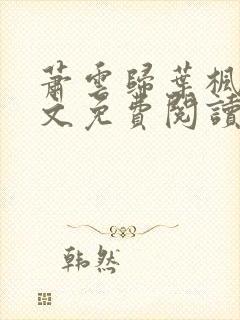 蕭雲歸葉楓
文免費閱讀
韩然